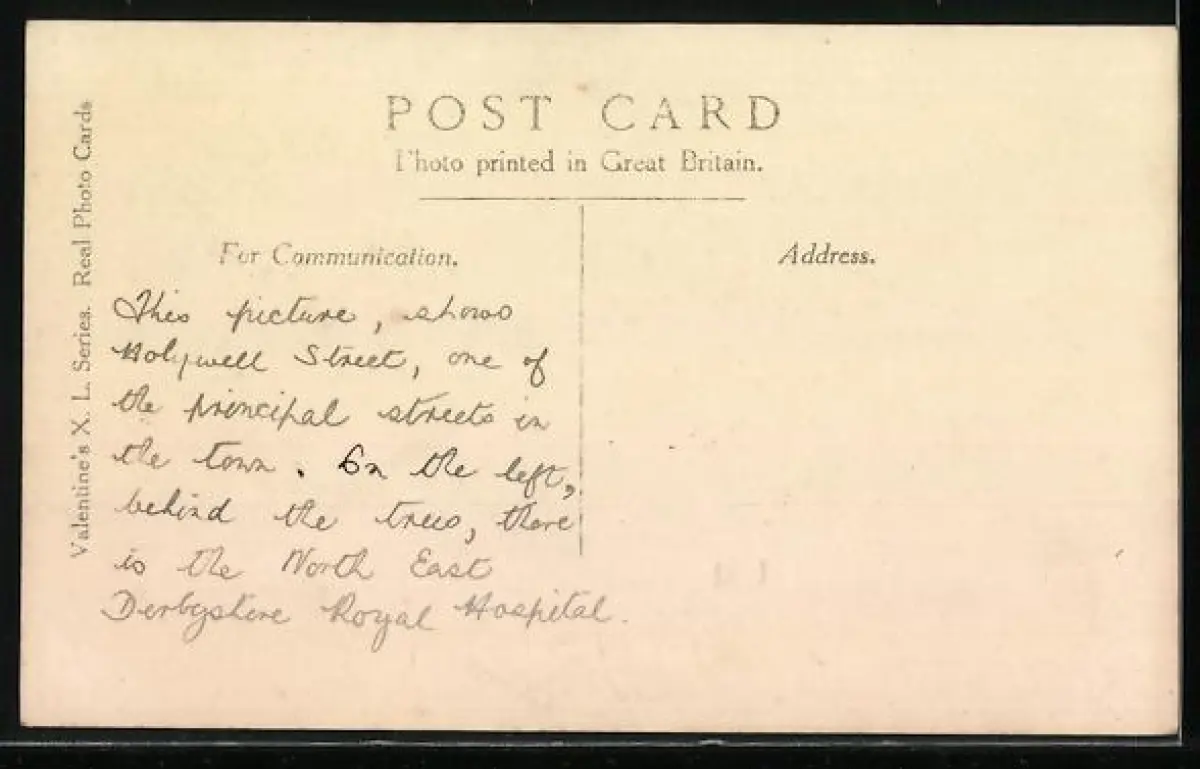 POST CARD
Photo printed in Great Britain.
For Communication.
Address.
Valentine's X. L. Series. Real Photo Cards
This picture, shows
Holywell Street, one of
the principal streets in
the town. On the left,
behind the trees, there
is the North East
Derbyshire Royal Hospital.